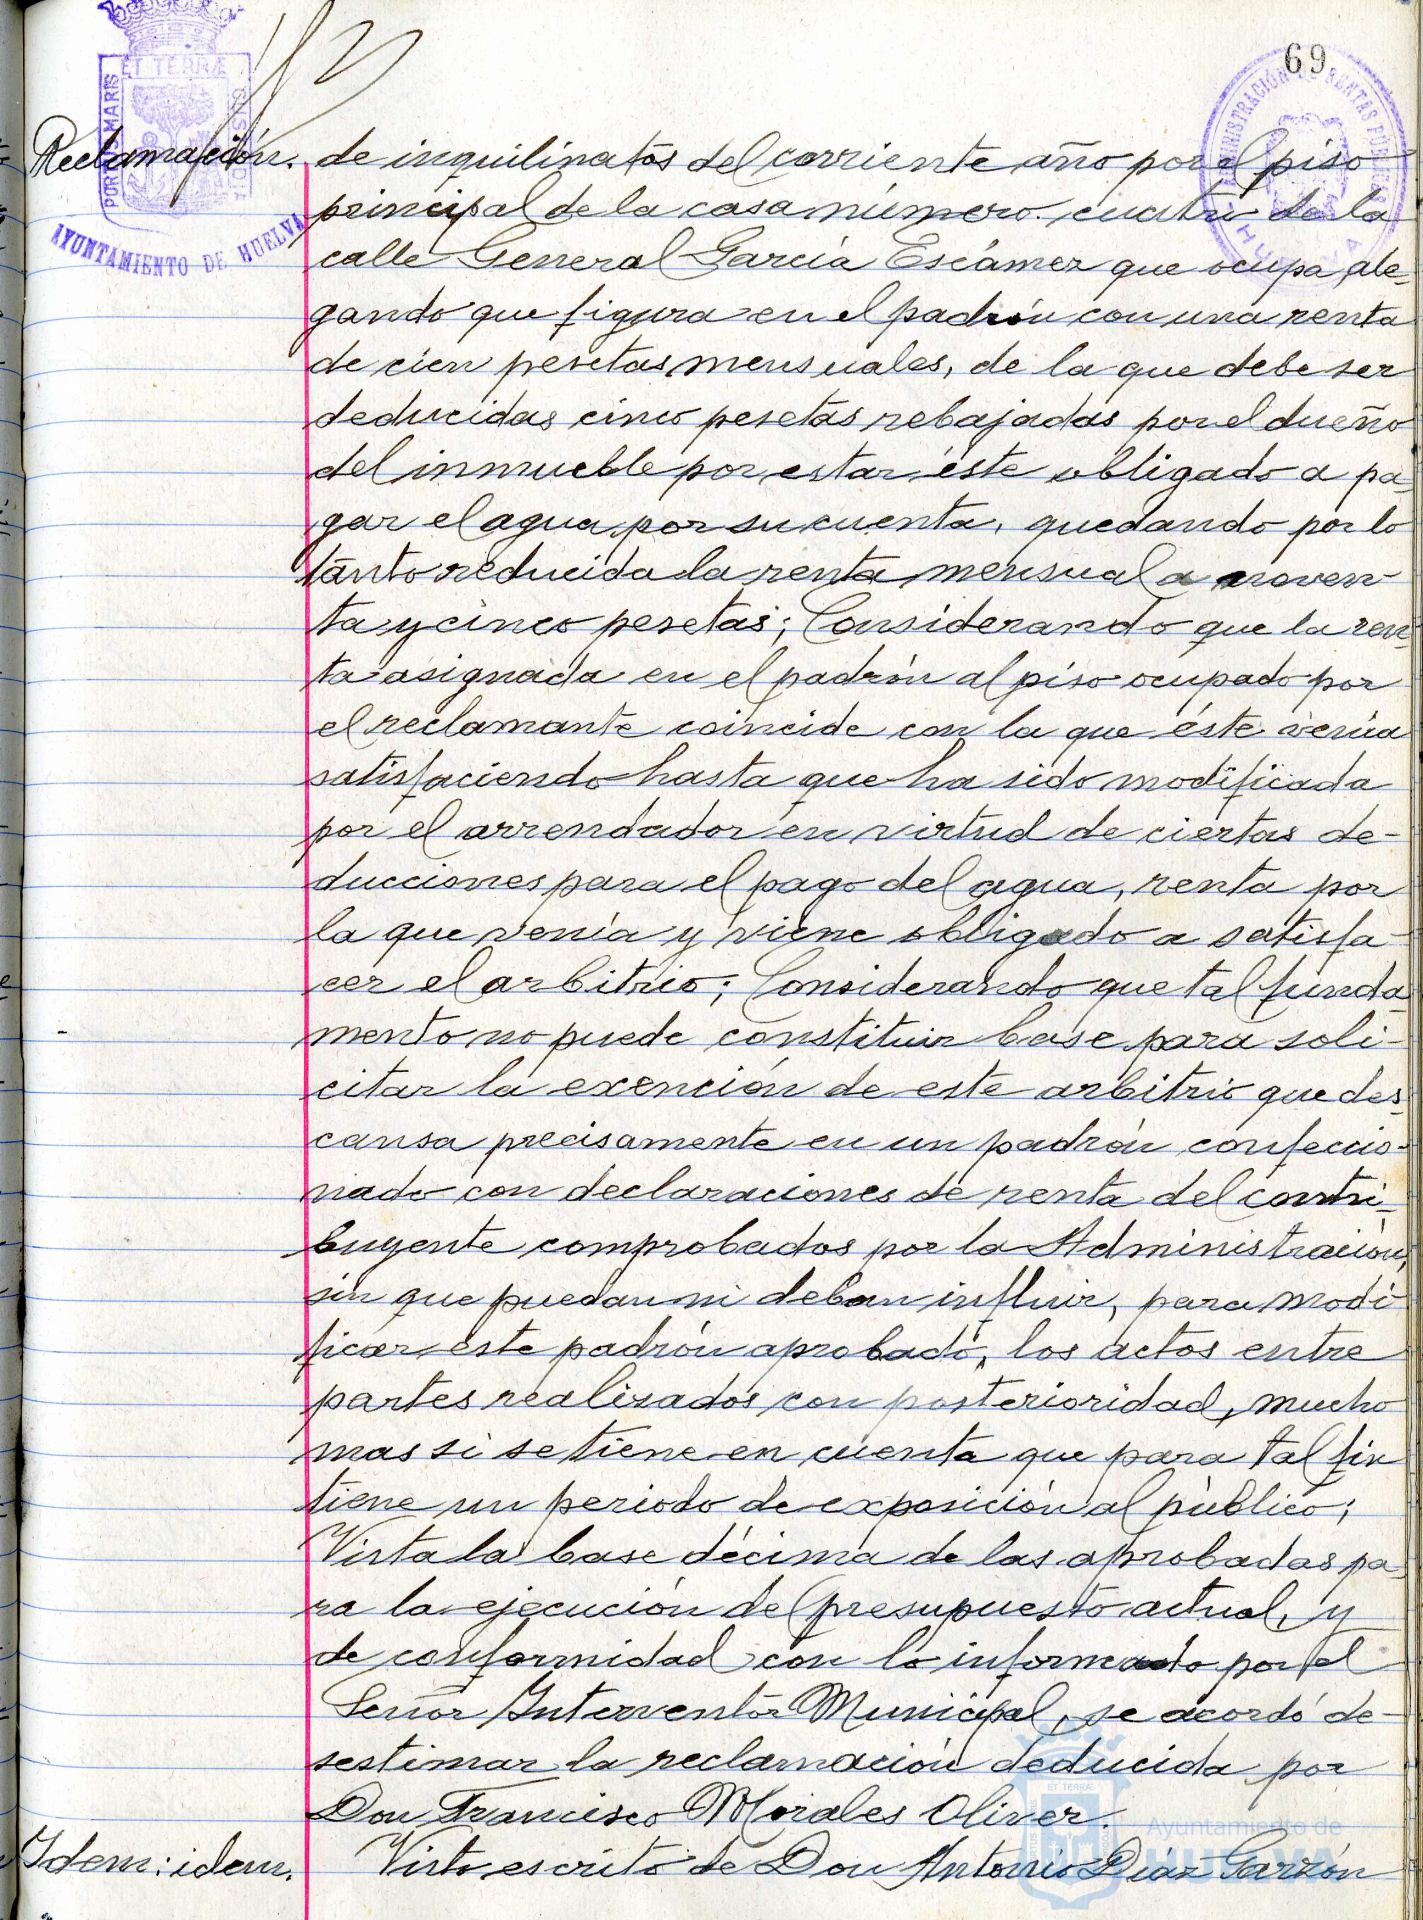 69
ET TERRÆ
PORTUS MARIS
CUSTODIA
AYUNTAMIENTO DE HUELVA
ADMINISTRACIÓN DE RENTAS PÚBLICAS
HUELVA
Reclamación. de inquilinatos del corriente año por el piso
principal de la casa número cuatro de la
calle General García Escámez que ocupa, ale-
gando que figura en el padrón con una renta
de cien pesetas mensuales, de la que debe ser
deducidas cinco pesetas rebajadas por el dueño
del inmueble por estar éste obligado a pa-
gar el agua por su cuenta, quedando por lo
tanto reducida la renta mensual a noven-
ta y cinco pesetas; Considerando que la ren-
ta asignada en el padrón al piso ocupado por
el reclamante coincide con la que éste venía
satisfaciendo hasta que ha sido modificada
por el arrendador en virtud de ciertas de-
ducciones para el pago del agua, renta por
la que venía y viene obligado a satisfa-
cer el arbitrio; Considerando que tal funda-
mento no puede constituir base para soli-
citar la exención de este arbitrio que des-
cansa precisamente en un padrón confeccio-
nado con declaraciones de renta del contri-
buyente comprobados por la Administración,
sin que puedan ni deban influir, para modi-
ficar este padrón aprobado, los actos entre
partes realizados con posterioridad, mucho
mas si se tiene en cuenta que para tal fin
tiene un periodo de exposición al público;
Vista la base décima de las aprobadas pa-
ra la ejecución del presupuesto actual, y
de conformidad con lo informado por el
Señor Interventor Municipal, se acordó de-
sestimar la reclamación deducida por
Don Francisco Morales Oliver.
Idem: idem. Visto escrito de Don Antonio Díaz Garzón
Ayuntamiento de
HUELVA